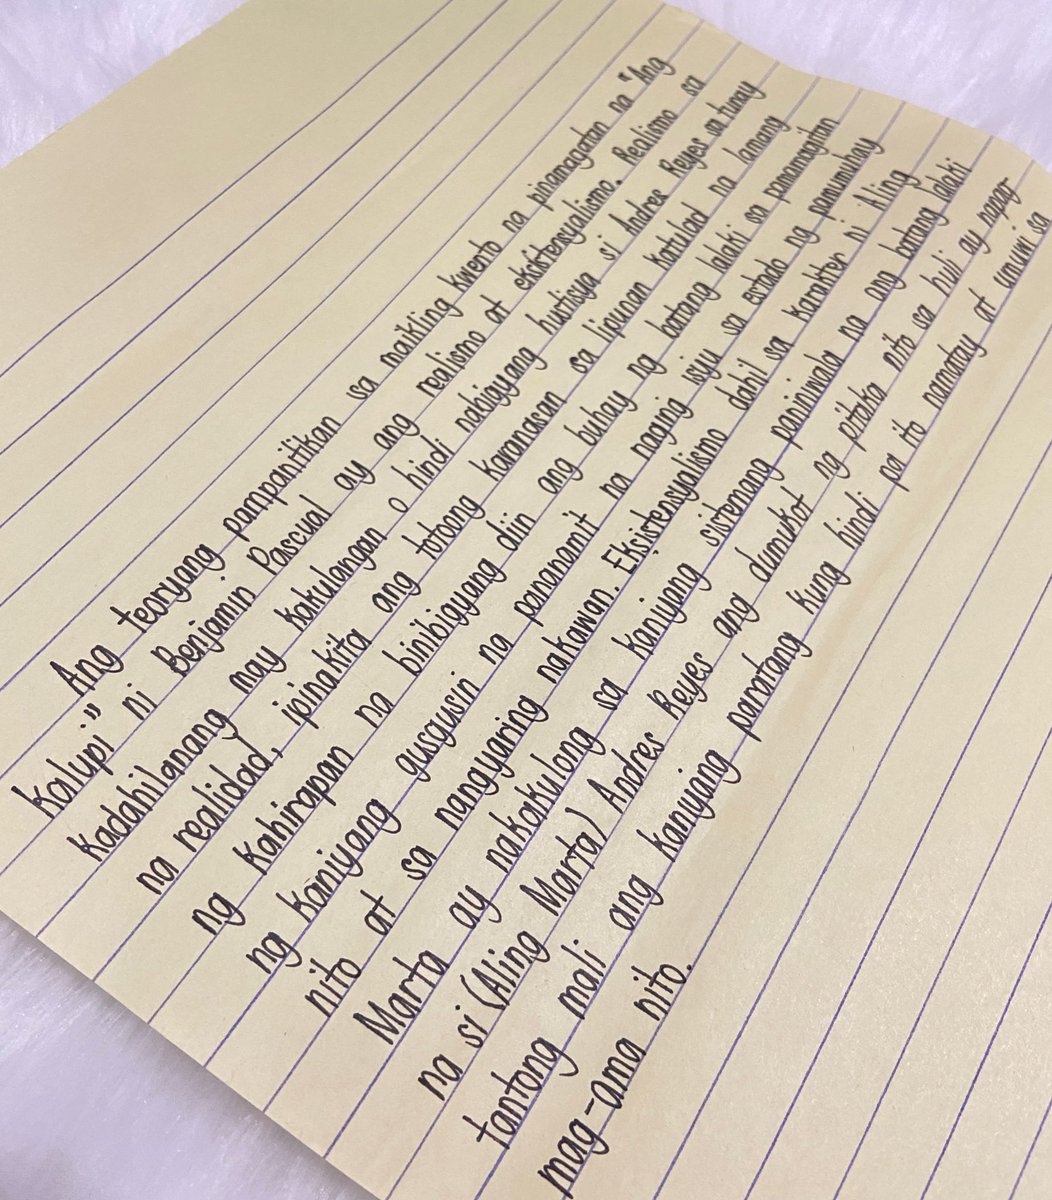 Ang teoryang pampanitikan sa maikling kwento na pinamagatan na "Ang
Kalupi" ni Benjamin Pascual ay ang realismo at eksistensyalismo. Realismo sa
kadahilanang may kakulangan o hindi nabigyang hustisya si Andres Reyes sa tunay
na realidad, ipinakita ang totoong karanasan sa lipunan katulad na lamang
ng kahirapan na binibigyang diin ang buhay ng batang lalaki sa pamamagitan
ng kaniyang gusgusin na pananamit na naging isyu sa estado ng pamumuhay
nito at sa nangyaring nakawan. Eksistensyalismo dahil sa karakter ni Aling
Marta ay nakakulong sa kaniyang sistemang paniniwala na ang batang lalaki
na si (Aling Marta) Andres Reyes ang dumukot ng pitaka nito sa huli ay napag-
tantong mali ang kaniyang paratang kung hindi pa ito namatay at umuwi sa
mag-ama nito.